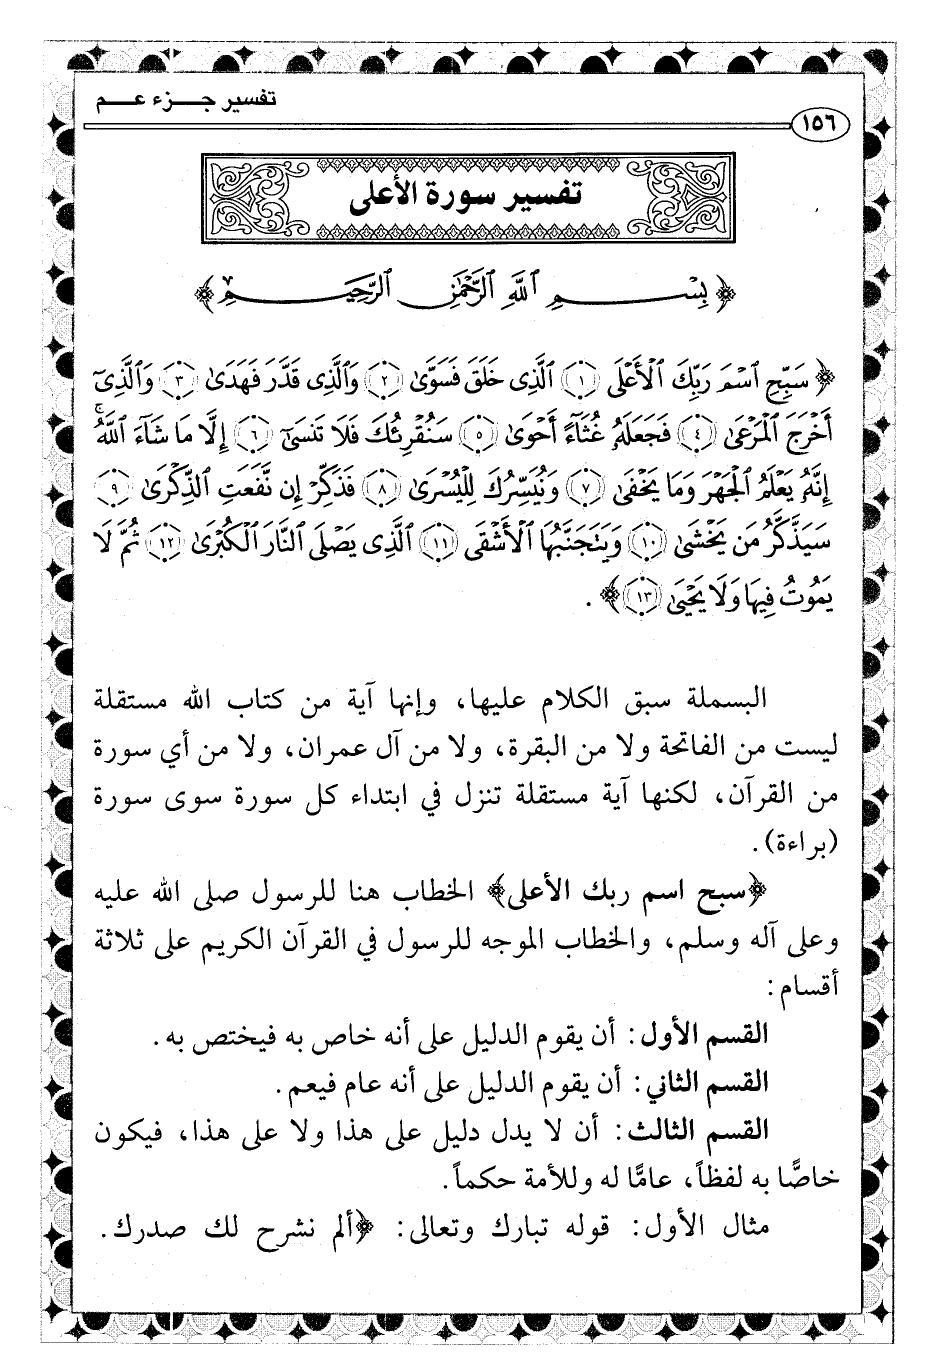 تفسير جـــزء عـــم
١٥٦
تفسير سورة الأعلى
﴿بِسْمِ ٱللَّهِ ٱلرَّحْمَٰنِ ٱلرَّحِيمِ﴾
﴿سَبِّحِ ٱسْمَ رَبِّكَ ٱلْأَعْلَى ١ ٱلَّذِى خَلَقَ فَسَوَّىٰ ٢ وَٱلَّذِى قَدَّرَ فَهَدَىٰ ٣ وَٱلَّذِىٓ
أَخْرَجَ ٱلْمَرْعَىٰ ٤ فَجَعَلَهُۥ غُثَآءً أَحْوَىٰ ٥ سَنُقْرِئُكَ فَلَا تَنسَىٰٓ ٦ إِلَّا مَا شَآءَ ٱللَّهُ ۚ
إِنَّهُۥ يَعْلَمُ ٱلْجَهْرَ وَمَا يَخْفَىٰ ٧ وَنُيَسِّرُكَ لِلْيُسْرَىٰ ٨ فَذَكِّرْ إِن نَّفَعَتِ ٱلذِّكْرَىٰ ٩
سَيَذَّكَّرُ مَن يَخْشَىٰ ١٠ وَيَتَجَنَّبُهَا ٱلْأَشْقَى ١١ ٱلَّذِى يَصْلَى ٱلنَّارَ ٱلْكُبْرَىٰ ١٢ ثُمَّ لَا
يَمُوتُ فِيهَا وَلَا يَحْيَىٰ ١٣﴾ .
البسملة سبق الكلام عليها، وإنها آية من كتاب الله مستقلة
ليست من الفاتحة ولا من البقرة، ولا من آل عمران، ولا من أي سورة
من القرآن، لكنها آية مستقلة تنزل في ابتداء كل سورة سوى سورة
(براءة).
﴿سبح اسم ربك الأعلى﴾ الخطاب هنا للرسول صلى الله عليه
وعلى آله وسلم، والخطاب الموجه للرسول في القرآن الكريم على ثلاثة
أقسام:
القسم الأول: أن يقوم الدليل على أنه خاص به فيختص به.
القسم الثاني: أن يقوم الدليل على أنه عام فيعم.
القسم الثالث: أن لا يدل دليل على هذا ولا على هذا، فيكون
خاصًّا به لفظاً، عامًّا له وللأمة حكماً.
مثال الأول: قوله تبارك وتعالى: ﴿ألم نشرح لك صدرك.